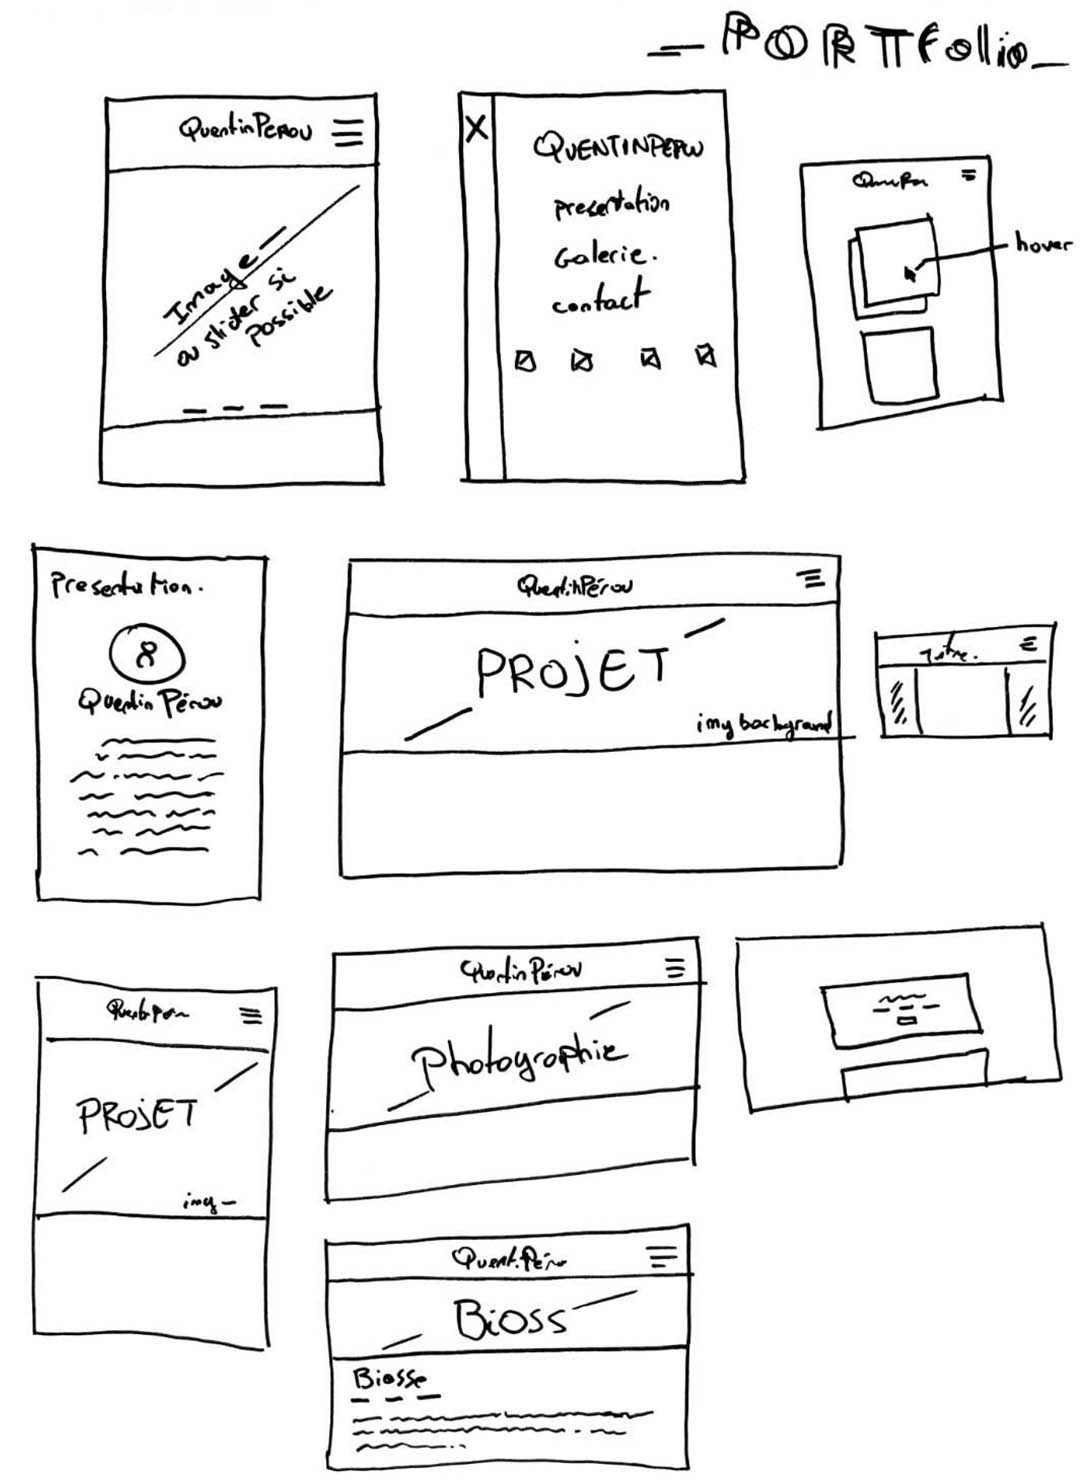 PORTFollio
QuentinPERou
Image
ou slider si
possible
X
QUENTINPEROU
presentation
Galerie.
contact
hover
Presentation.
Quentin Pérou
QuentinPérou
PROJET
img background
Titre.
PROJET
img
QuentinPérou
Photographie
Quent.Pérou
BiOSS
Biosse